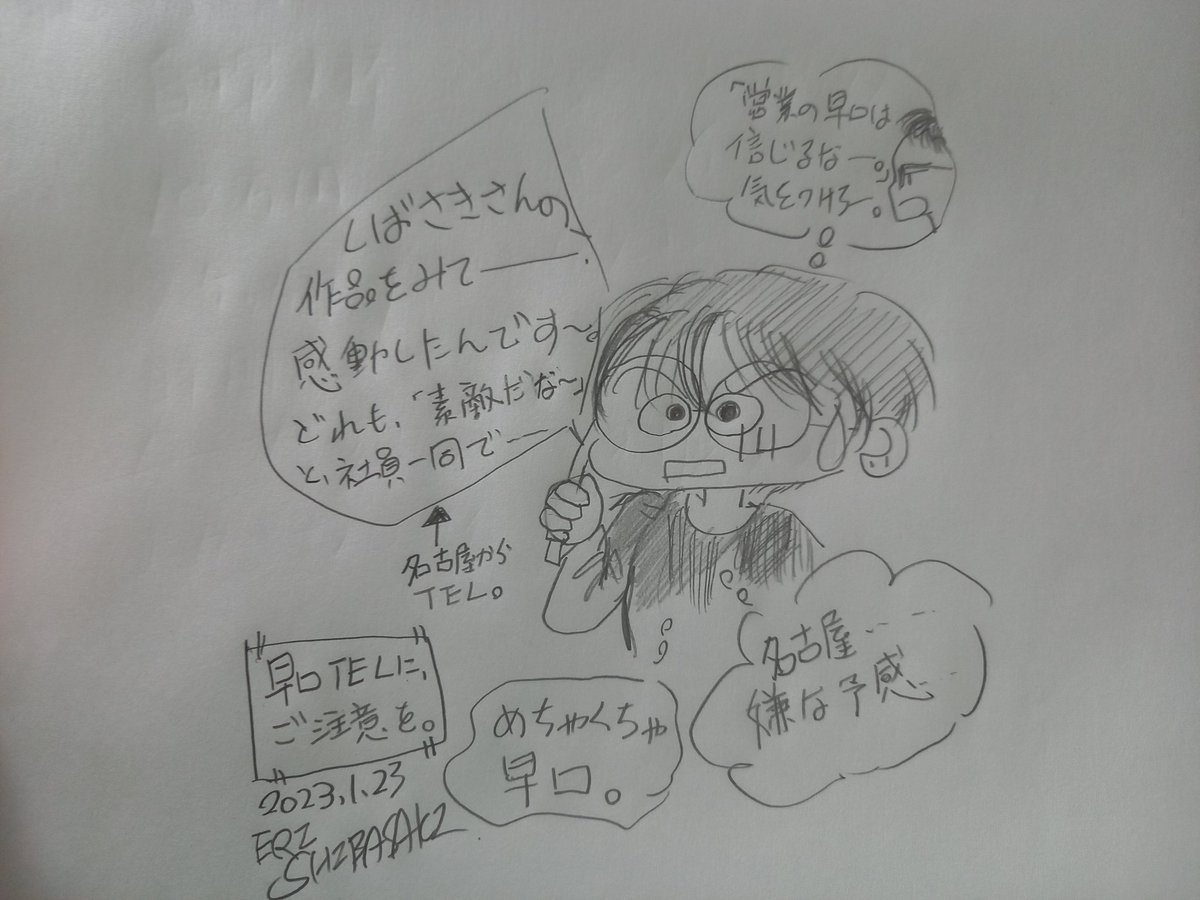 「営業の早口は
信じるなー。」
気をつけろー。
しばさきさんの
作品をみて――
感動したんです〜。
どれも、「素敵だな〜」
と、社員一同で――
名古屋から
TEL。
名古屋……
嫌な予感……
めちゃくちゃ
早口。
早口TELに、
ご注意を。
2023.1.23
ERI
SHIBASAKI